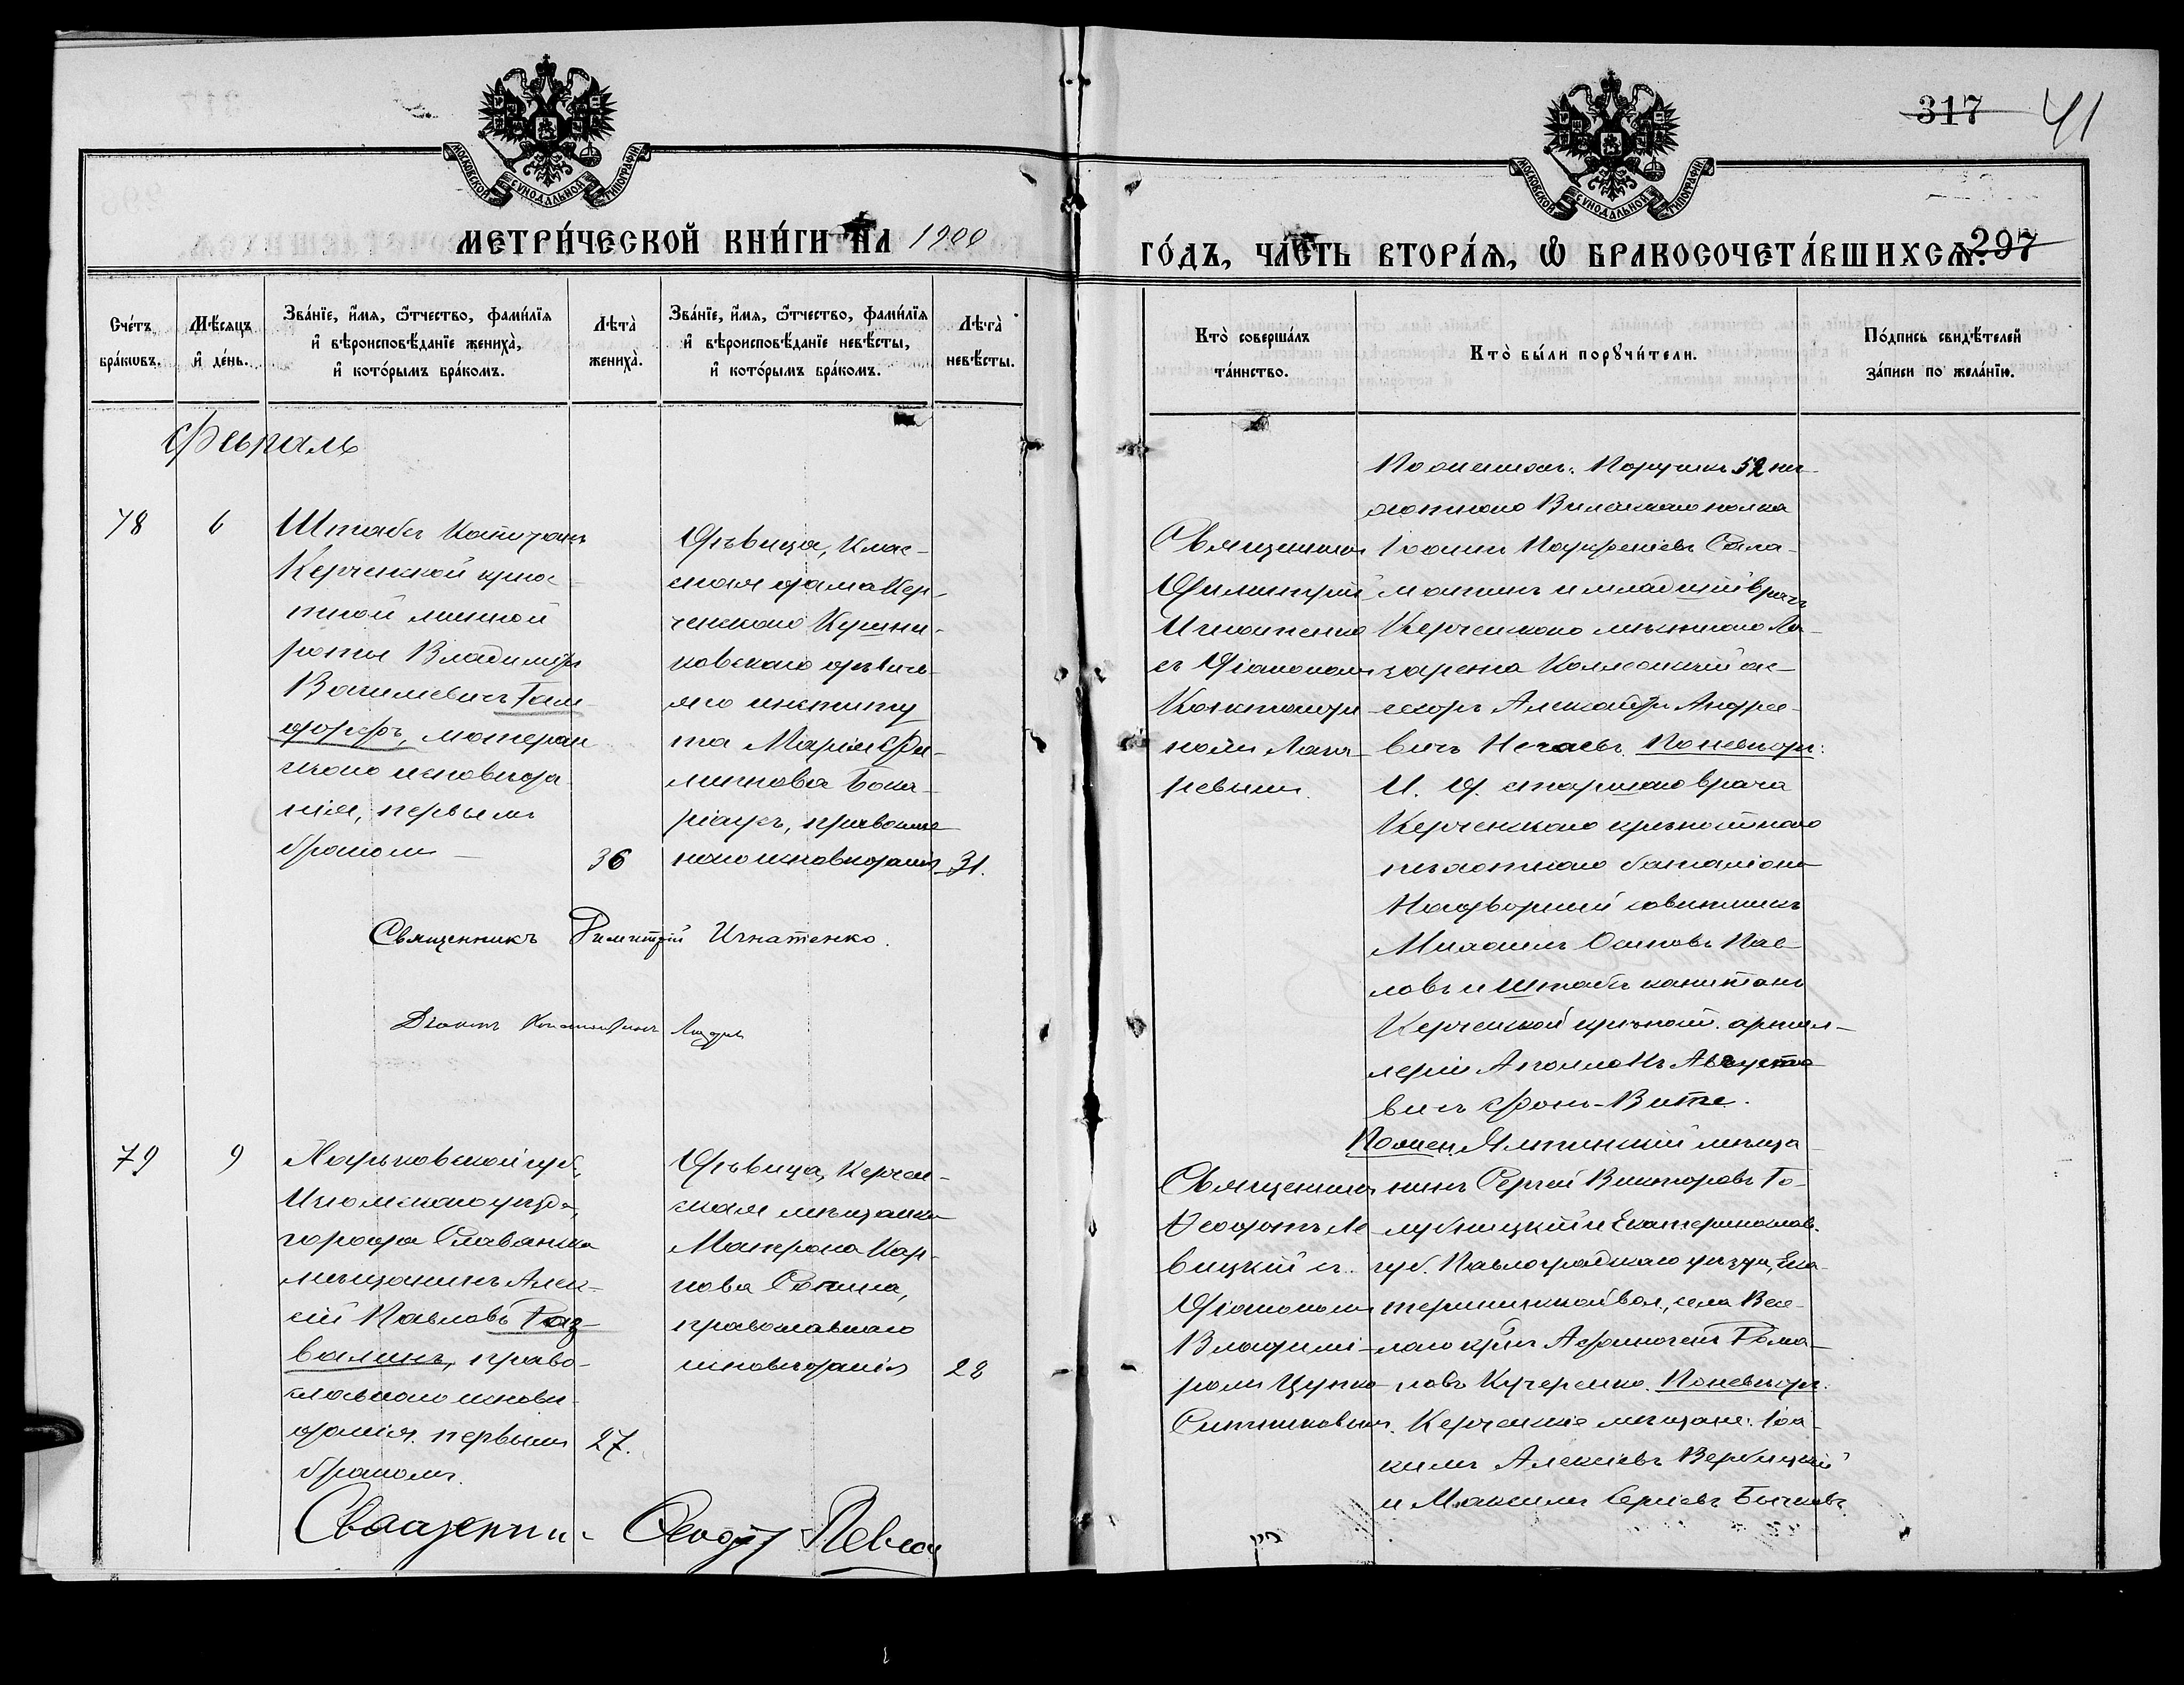 317 41
МОСКОВСКОЙ СѴНОДАЛЬНОЙ ТИПОГРАФІИ
МОСКОВСКОЙ СѴНОДАЛЬНОЙ ТИПОГРАФІИ
МЕТРИ́ЧЕСКОЙ КНИ́ГИ НА 1900
ГО́ДЪ, ЧА́СТЬ ВТОРА́Я, Ѡ БРАКОСОЧЕТА́ВШИХСЯ. 297
Сче́тъ бра́кѡвъ.
Мѣ́сяцъ и҆ де́нь.
Зва́нїе, и҆́мя, ѻ҆́тчество, фами́лїя
и҆ вѣроисповѣ́данїе жениха̀,
и҆ кото́рымъ бра́комъ.
Лѣта̀ жениха̀.
Зва́нїе, и҆́мя, ѻ҆́тчество, фами́лїя
и҆ вѣроисповѣ́данїе невѣ́сты,
и҆ кото́рымъ бра́комъ.
Лѣта̀ невѣ́сты.
Кто̀ соверша́лъ та́инство.
Кто̀ бы́ли порꙋчи́тели.
По́дпись свидѣ́телей за́писи по жела́нїю.
Февраль
78
6
Штабсъ Капитанъ
Керченской крѣпо-
стной минной
роты Владимiръ
Васильевичъ Гам-
дорфъ, лютеран
скаго исповѣда
нія, первымъ
бракомъ
36
Дѣвица, Клас-
сная дама Кер-
ченскаго Кушни-
ковскаго дѣвичь-
яго институ
та Марія Фи-
липпова Бока-
ріусъ, православ
наго исповѣданія
31.
Священникъ Димитрій Игнатенко.
Діаконъ Константинъ
Священникъ
Димитрій
Игнатенко
съ Діакономъ
Константи-
номъ Лаза-
ревымъ.
По женихѣ: Поручикъ 52 пѣ-
хотнаго Виленскаго полка
Іоаннъ Парѳеніевъ Сала-
матинъ и младшій врачъ
Керченскаго мѣстнаго Ла-
зарета Коллежскій ас-
сесоръ Александръ Андрее-
вичъ Нечаевъ. По невѣстѣ:
И. Д. старшаго врача
Керченскаго крѣпостнаго
пѣхотнаго баталіона
Надворный совѣтникъ
Михаилъ Осиповъ Пав-
ловъ и Штабсъ капитанъ
Керченской крѣпост. артил-
леріи Аполлонъ Августо
вичъ фонъ-Витте.
79
9
Харьковской губ.,
Изюмскаго уѣзда,
города Славянска
мѣщанинъ Алек-
сій Павловъ Газ-
валинъ, право-
славнаго исповѣ-
данія первымъ
бракомъ.
27.
Дѣвица, Керчен-
ская мѣщанка
Матрона Кар-
пова Сотина,
православнаго
исповѣданія
28
Священникъ
Ѳеодотъ Ле
вицкій съ
Діакономъ
Владимі-
ромъ Цупко
Ситниковымъ.
По жен. Ялтинскій мѣща
нинъ Сергій Викторовъ Го-
лубицкій и Екатеринослав.
губ. Павлоградскаго уѣзда, Ека-
терининской вол., села Весе-
лаго кр-нъ Аѳанасій Рома-
новъ Кучеренко. По невѣстѣ:
Керченскіе мѣщане: Іоа-
кимъ Алексіевъ Вербицкій
и Максимъ Сергіевъ Бычковъ
Священни- Ѳеодотъ Левицк